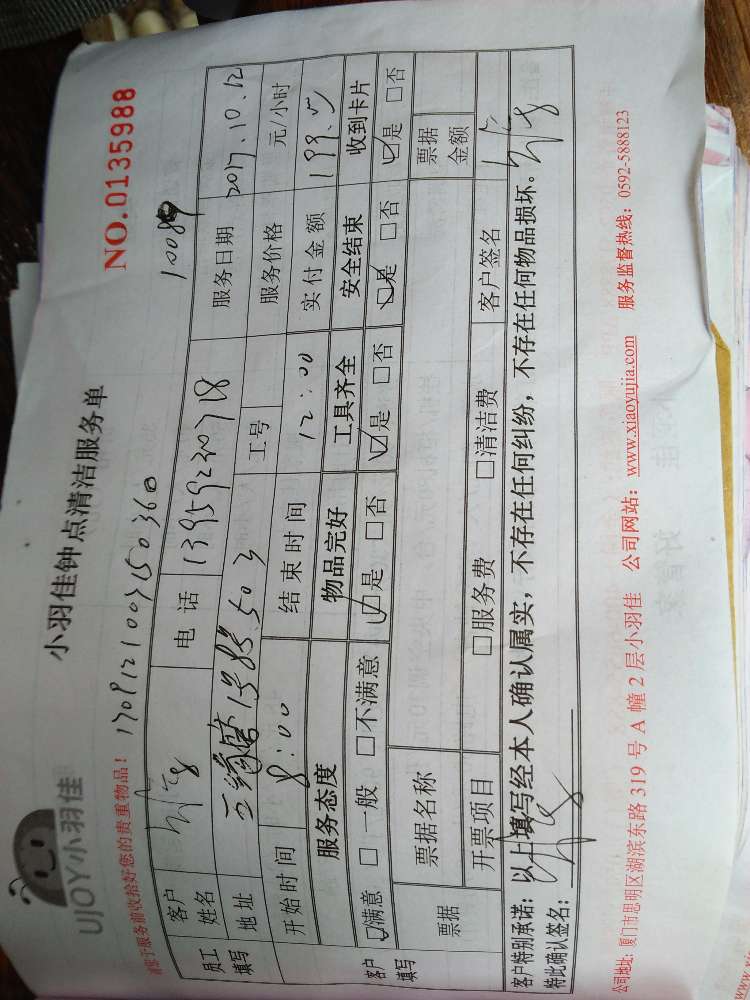 UJOY小羽佳
小羽佳钟点清洁服务单
NO.0135988
请您于服务前收拾好您的贵重物品！
10089
员工填写
客户姓名
电话 13959230718
服务日期 2017.10.12
地址
503
工号
服务价格 元/小时
开始时间 8:00
结束时间 12:00
实付金额
客户填写
服务态度 物品完好 工具齐全 安全结束 收到卡片
☑满意 □一般 □不满意 ☑是 □否 ☑是 □否 ☑是 □否 ☑是 □否
票据
票据名称
票据金额
开票项目 □服务费 □清洁费
客户签名
客户特别承诺：以上填写经本人确认属实，不存在任何纠纷，不存在任何物品损坏。
特此确认签名：
公司地址：厦门市思明区湖滨东路 319 号 A 幢 2 层小羽佳 公司网站：www.xiaoyujia.com 服务监督热线：0592-5888123